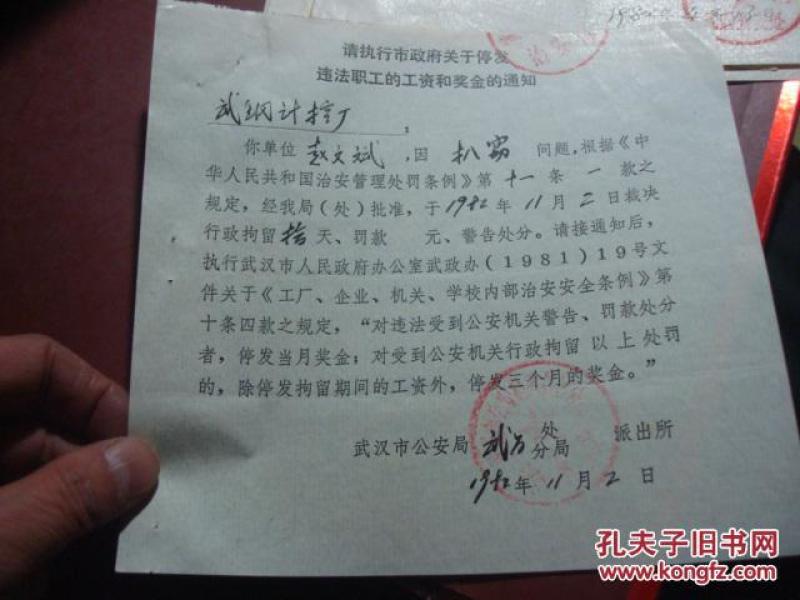 请执行市政府关于停发
违法职工的工资和奖金的通知
武钢计控厂：
你单位 赵文斌 ，因 扒窃 问题，根据《中
华人民共和国治安管理处罚条例》第 十一 条 一 款之
规定，经我局（处）批准，于1982年11月2日裁决
行政拘留 拾 天、罚款 元、警告处分。请接通知后，
执行武汉市人民政府办公室武政办（1981）19号文
件关于《工厂、企业、机关、学校内部治安安全条例》第
十条四款之规定，“对违法受到公安机关警告、罚款处分
者，停发当月奖金；对受到公安机关行政拘留以上处罚
的，除停发拘留期间的工资外，停发三个月的奖金。”
武汉市公安局 处分局 派出所
1982年11月2日
孔夫子旧书网
www.kongfz.com